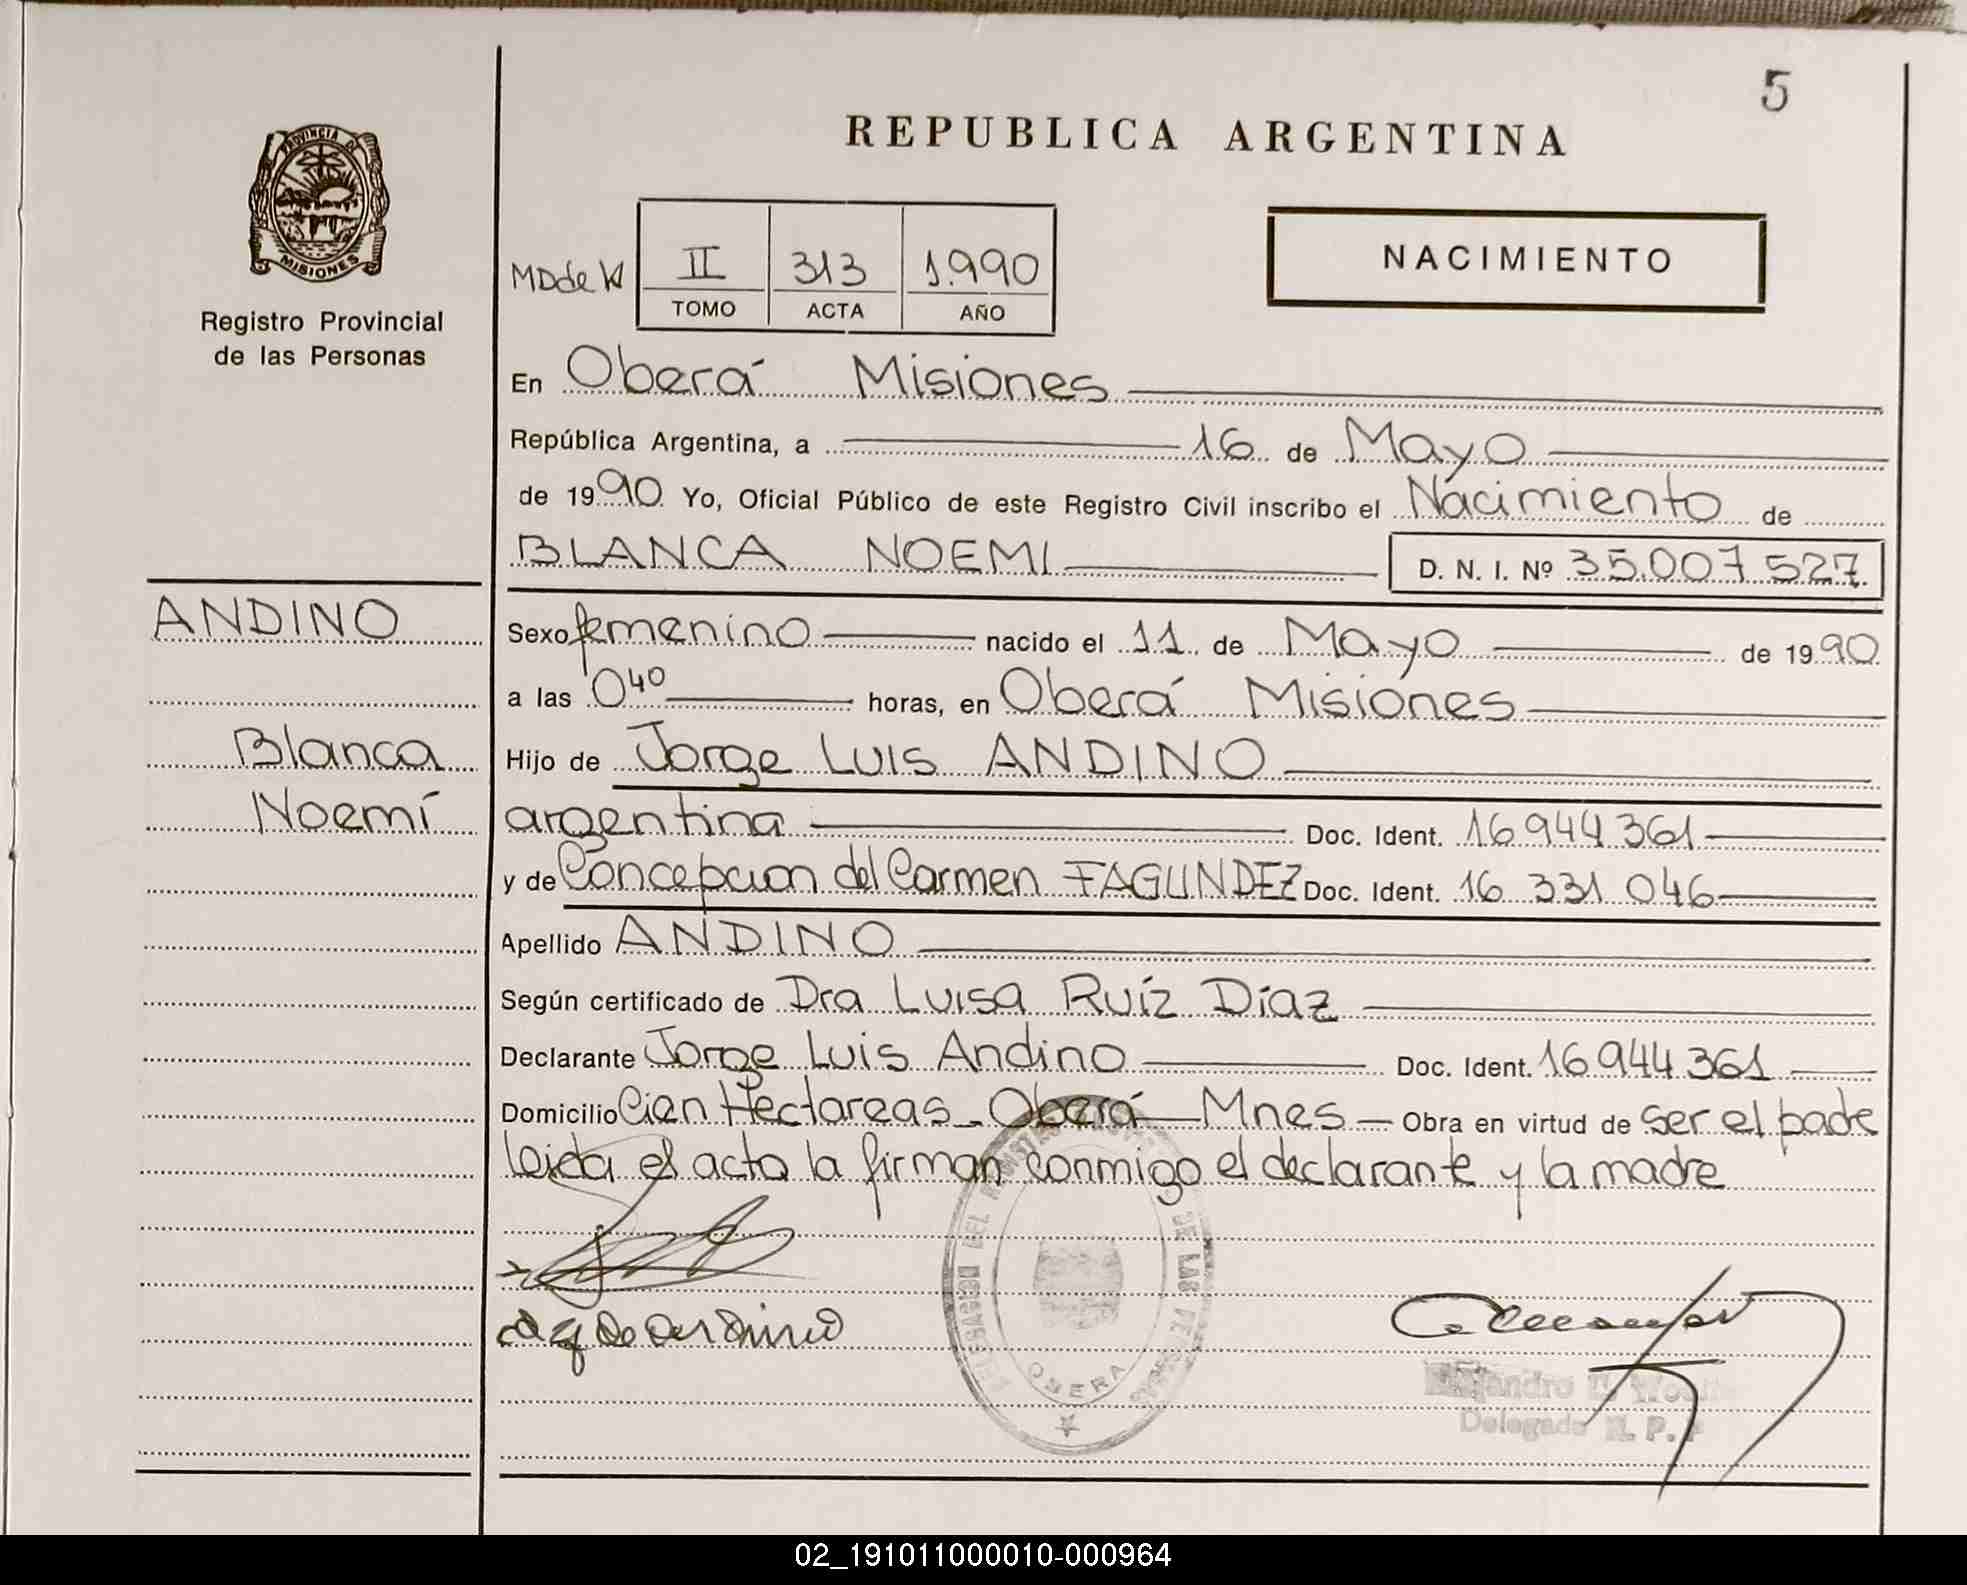 5
REPUBLICA ARGENTINA
PROVINCIA DE
MISIONES
Registro Provincial
de las Personas
MDdeW
II 313 1.990
TOMO ACTA AÑO
NACIMIENTO
En Oberá Misiones
República Argentina, a 16 de Mayo
de 1990 Yo, Oficial Público de este Registro Civil inscribo el Nacimiento de
BLANCA NOEMI D. N. I. Nº 35.007 527
ANDINO
Blanca
Noemí
Sexo femenino nacido el 11 de Mayo de 1990
a las 0 40 horas, en Oberá Misiones
Hijo de Jorge Luis ANDINO
argentina Doc. Ident. 16 944 361
y de Concepcion del Carmen FAGUNDEZ Doc. Ident. 16 331 046
Apellido ANDINO
Según certificado de Dra Luisa Ruíz Díaz
Declarante Jorge Luis Andino Doc. Ident. 16 944 361
Domicilio Cien Hectareas - Oberá - Mnes - Obra en virtud de ser el padre
leida el acta la firman conmigo el declarante y la madre
DELEGACION DEL DE LAS
OBERA
Delegado R. P. P
02_191011000010-000964